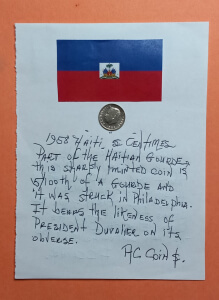 1958 HAITI 5 CENTIMES
PART OF THE HAITIAN GOURDE,
THIS SHARPLY MINTED COIN IS
5/100TH OF A GOURDE AND
IT WAS STRUCK IN PHILADELPHIA.
IT BEARS THE LIKENESS OF
PRESIDENT DUVALIER ON ITS
OBVERSE.
A.C. COIN $.